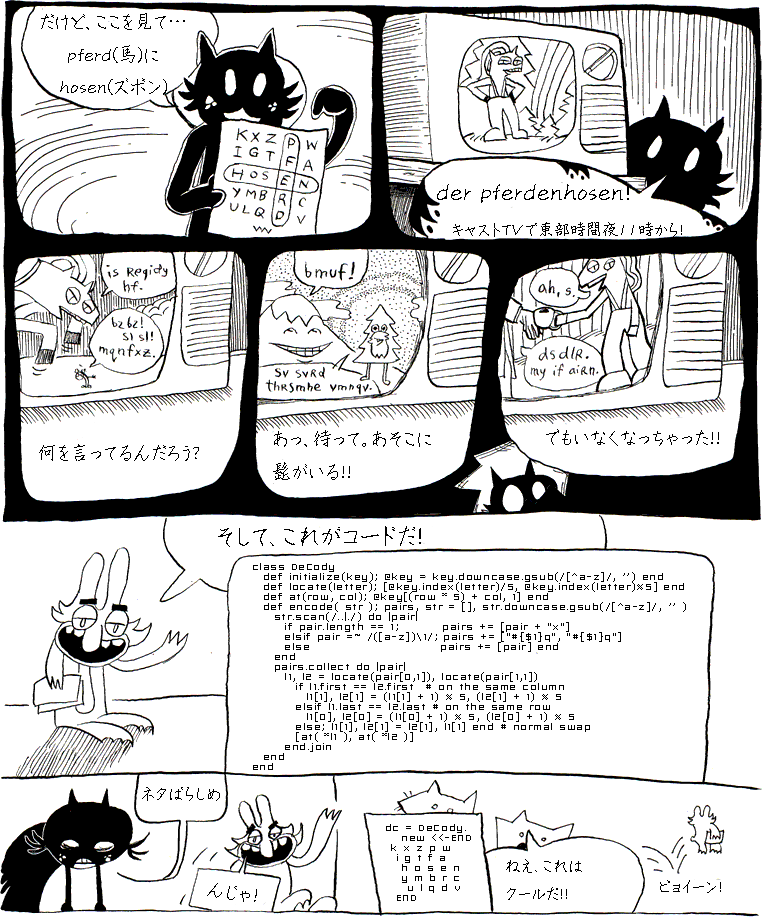 だけど、ここを見て…
pferd(馬)に
hosen(ズボン)
K X Z P W
I G T F A
H O S E N
Y M B R C
U L Q D V
der pferdenhosen!
キャストTVで東部時間夜11時から!
is Regidy
hf.
bzbz!
sısl!
mqnfxz.
何を言ってるんだろう?
bmuf!
sv svRd
thRSmhe vmnqv.
あっ、待って。あそこに
髭がいる!!
ah, s.
dsdlR.
my if aiRn.
でもいなくなっちゃった!!
そして、これがコードだ!
class DeCody
def initialize(key); @key = key.downcase.gsub(/[^a-z]/, '') end
def locate(letter); [@key.index(letter)/5, @key.index(letter)%5] end
def at(row, col); @key[(row * 5) + col, 1] end
def encode( str ); pairs, str = [], str.downcase.gsub(/[^a-z]/, '' )
str.scan(/..|./) do |pair|
if pair.length == 1; pairs += [pair + "x"]
elsif pair =~ /([a-z])\1/; pairs += ["#{$1}q", "#{$1}q"]
else pairs += [pair] end
end
pairs.collect do |pair|
l1, l2 = locate(pair[0,1]), locate(pair[1,1])
if l1.first == l2.first # on the same column
l1[1], l2[1] = (l1[1] + 1) % 5, (l2[1] + 1) % 5
elsif l1.last == l2.last # on the same row
l1[0], l2[0] = (l1[0] + 1) % 5, (l2[0] + 1) % 5
else; l1[1], l2[1] = l2[1], l1[1] end # normal swap
[at( *l1 ), at( *l2 )]
end.join
end
end
ネタばらしめ
んじゃ!
dc = DeCody.
new <<-END
k x z p w
i g t f a
h o s e n
y m b r c
u l q d v
END
ねえ、これは
クールだ!!
ピョイーン!